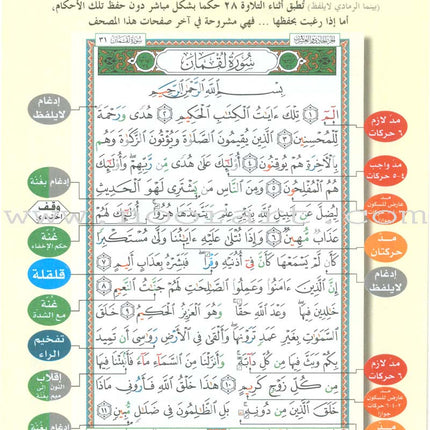 (بينما الرمادي لايلفظ) تُطبق أثناء التلاوة ٢٨ حكماً بشكل مباشر دون حفظ تلك الأحكام،
أما إذا رغبت بحفظها ... فهي مشروحة في آخر صفحات هذا المصحف
سُورَةُ لُقْمَان ٣١
سُورَةُ لُقْمَانَ
بِسْمِ اللَّهِ الرَّحْمَٰنِ الرَّحِيمِ
الٓمٓ ١ تِلْكَ ءَايَٰتُ الْكِتَٰبِ الْحَكِيمِ ٢ هُدًى وَرَحْمَةً
لِّلْمُحْسِنِينَ ٣ الَّذِينَ يُقِيمُونَ الصَّلَوٰةَ وَيُؤْتُونَ الزَّكَوٰةَ وَهُم
بِالْءَاخِرَةِ هُمْ يُوقِنُونَ ٤ أُوْلَٰٓئِكَ عَلَىٰ هُدًى مِّن رَّبِّهِمْ وَأُوْلَٰٓئِكَ
هُمُ الْمُفْلِحُونَ ٥ وَمِنَ النَّاسِ مَن يَشْتَرِى لَهْوَ الْحَدِيثِ
لِيُضِلَّ عَن سَبِيلِ اللَّهِ بِغَيْرِ عِلْمٍ وَيَتَّخِذَهَا هُزُوًا أُوْلَٰٓئِكَ لَهُمْ
عَذَابٌ مُّهِينٌ ٦ وَإِذَا تُتْلَىٰ عَلَيْهِ ءَايَٰتُنَا وَلَّىٰ مُسْتَكْبِرًا
كَأَن لَّمْ يَسْمَعْهَا كَأَنَّ فِىٓ أُذُنَيْهِ وَقْرًا فَبَشِّرْهُ بِعَذَابٍ أَلِيمٍ ٧
إِنَّ الَّذِينَ ءَامَنُوا۟ وَعَمِلُوا۟ الصَّٰلِحَٰتِ لَهُمْ جَنَّٰتُ النَّعِيمِ ٨
خَٰلِدِينَ فِيهَا وَعْدَ اللَّهِ حَقًّا وَهُوَ الْعَزِيزُ الْحَكِيمُ ٩ خَلَقَ
السَّمَٰوَٰتِ بِغَيْرِ عَمَدٍ تَرَوْنَهَا وَأَلْقَىٰ فِى الْأَرْضِ رَوَٰسِىَ أَن تَمِيدَ
بِكُمْ وَبَثَّ فِيهَا مِن كُلِّ دَآبَّةٍ وَأَنزَلْنَا مِنَ السَّمَآءِ مَآءً فَأَنۢبَتْنَا فِيهَا
مِن كُلِّ زَوْجٍ كَرِيمٍ ١٠ هَٰذَا خَلْقُ اللَّهِ فَأَرُونِى مَاذَا
خَلَقَ الَّذِينَ مِن دُونِهِ بَلِ الظَّٰلِمُونَ فِى ضَلَٰلٍ مُّبِينٍ ١١
مد لازم
٦ حركات
مد واجب
٤-٥ حركات
مد
حركتان
إدغام
لايلفظ
مد لازم
٦ حركات
مد
إدغام
لايلفظ
إدغام بغُنة
وقف
غُنة
حكم الإخفاء
قلقلة
غُنة
مع الشدة
تفخيم
الراء
إقلاب
إدغام بغُنة